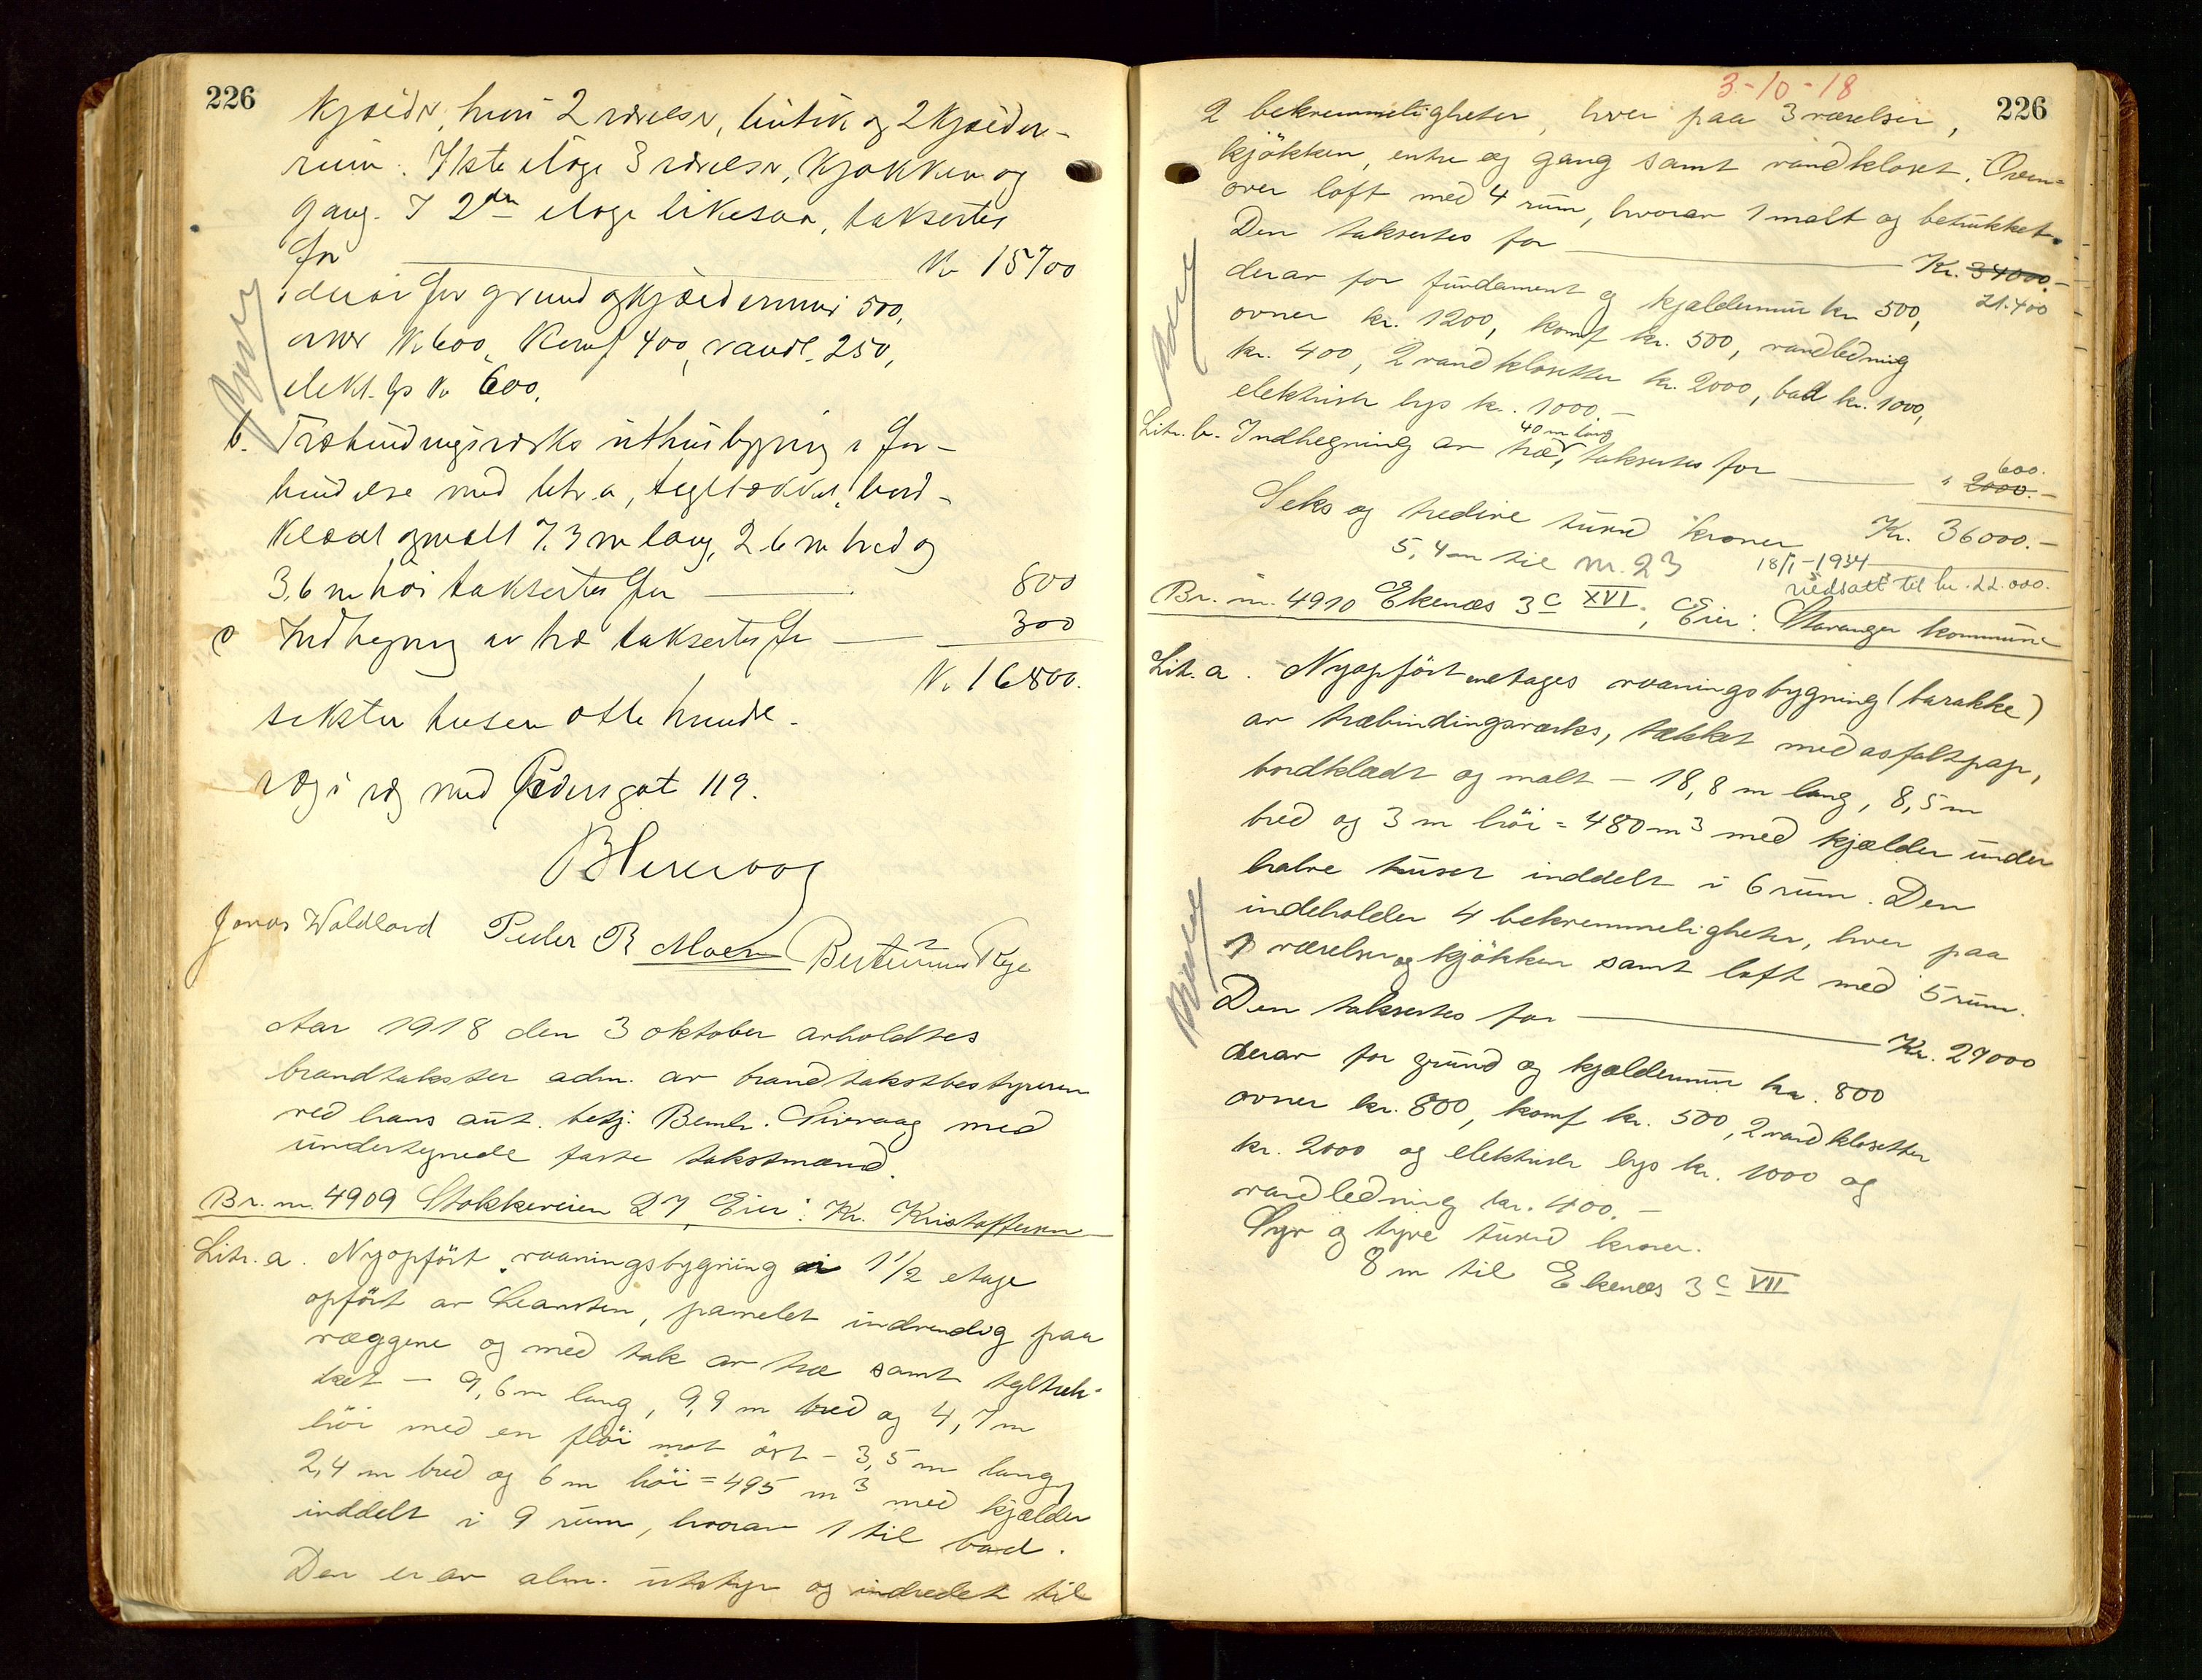 226
kjælder, hvori 2 værelser, butik og 2 kjælder-
rum. I 1ste etage 3 værelser, kjøkken og
gang. I 2den etage likesaa, taksertes
for Kr 15700
derav for grund og kjældermur 500,
ovner Kr 600, Komf 400, vandl. 250,
elekt. lys Kr 600.
b. Træbindingsverks uthusbygning i for-
bindelse med litr. a, tegltækket, bord-
klædt og malt 7,3 m lang, 2,6 m bred og
3,6 m høi taksertes for 800
c Indhegning av træ taksertes for 300
Kr. 16800.
seksten tusen otte hundr.
væg i væg med Pedersgat 119.
Jonas Waldland Peder R Moen
Aar 1918 den 3 oktober avholdtes
brandtakster adm. av brandtakstbestyreren
ved hans aut. betj. Bernh. med
undertegnede faste takstmænd.
Br. nr. 4909 Stokkeveien 27, Eier: Kr. Kristoffersen
Litr. a. Nyopført vaaningsbygning i 1 1/2 etage
opført av Leansten, panelet indvendig paa
væggene og med tak av træ samt tegltæk-
ket – 9,6 m lang, 9,9 m bred og 4,7 m
høi med en fløi mot øst – 3,5 m lang,
2,4 m bred og 6 m høi = 495 m3 med kjælder
inddelt i 9 rum, hvorav 1 til bad.
Den er av alm. utstyr og indredet til
3-10-18
226
2 bekvemmeligheter, hver paa 3 værelser,
kjøkken, entre og gang samt vandkloset. Oven-
over loft med 4 rum, hvorav 1 malt og betrukket.
Den taksertes for Kr. 34000.-
21.400
derav for fundament og kjældermur kr 500,
ovner kr. 1200, komf kr. 500, vandledning
kr. 400, 2 vandklosetter kr. 2000, bad kr. 1000,
elektrisk lys kr. 1000.-
40 m lang
Litr. b. Indhegning av træ, taksertes for " 2000.-
600.
Seks og tredive tusind kroner Kr. 36000.-
5,4 m til nr. 23 18/1-1934
nedsatt til kr. 22.000.
Br. nr. 4910 Ekenæs 3c XVI, Eier: Stavanger kommune
Litr. a. Nyopført enetages vaaningsbygning (barakke)
av træbindingsverks, tækket med asfaltpap,
bordklædt og malt – 18,8 m lang, 8,5 m
bred og 3 m høi = 480 m3 med kjælder under
halve huset inddelt i 6 rum. Den
indeholder 4 bekvemmeligheter, hver paa
1 værelse og kjøkken samt loft med 5 rum.
Den taksertes for Kr. 27000
derav for grund og kjældermur kr. 800
ovner kr. 800, komf kr. 500, 2 vandklosetter
kr. 2000 og elektrisk lys kr. 1000 og
vandledning kr. 400.-
Syv og tyve tusind kroner.
8 m til Ekenæs 3c VII